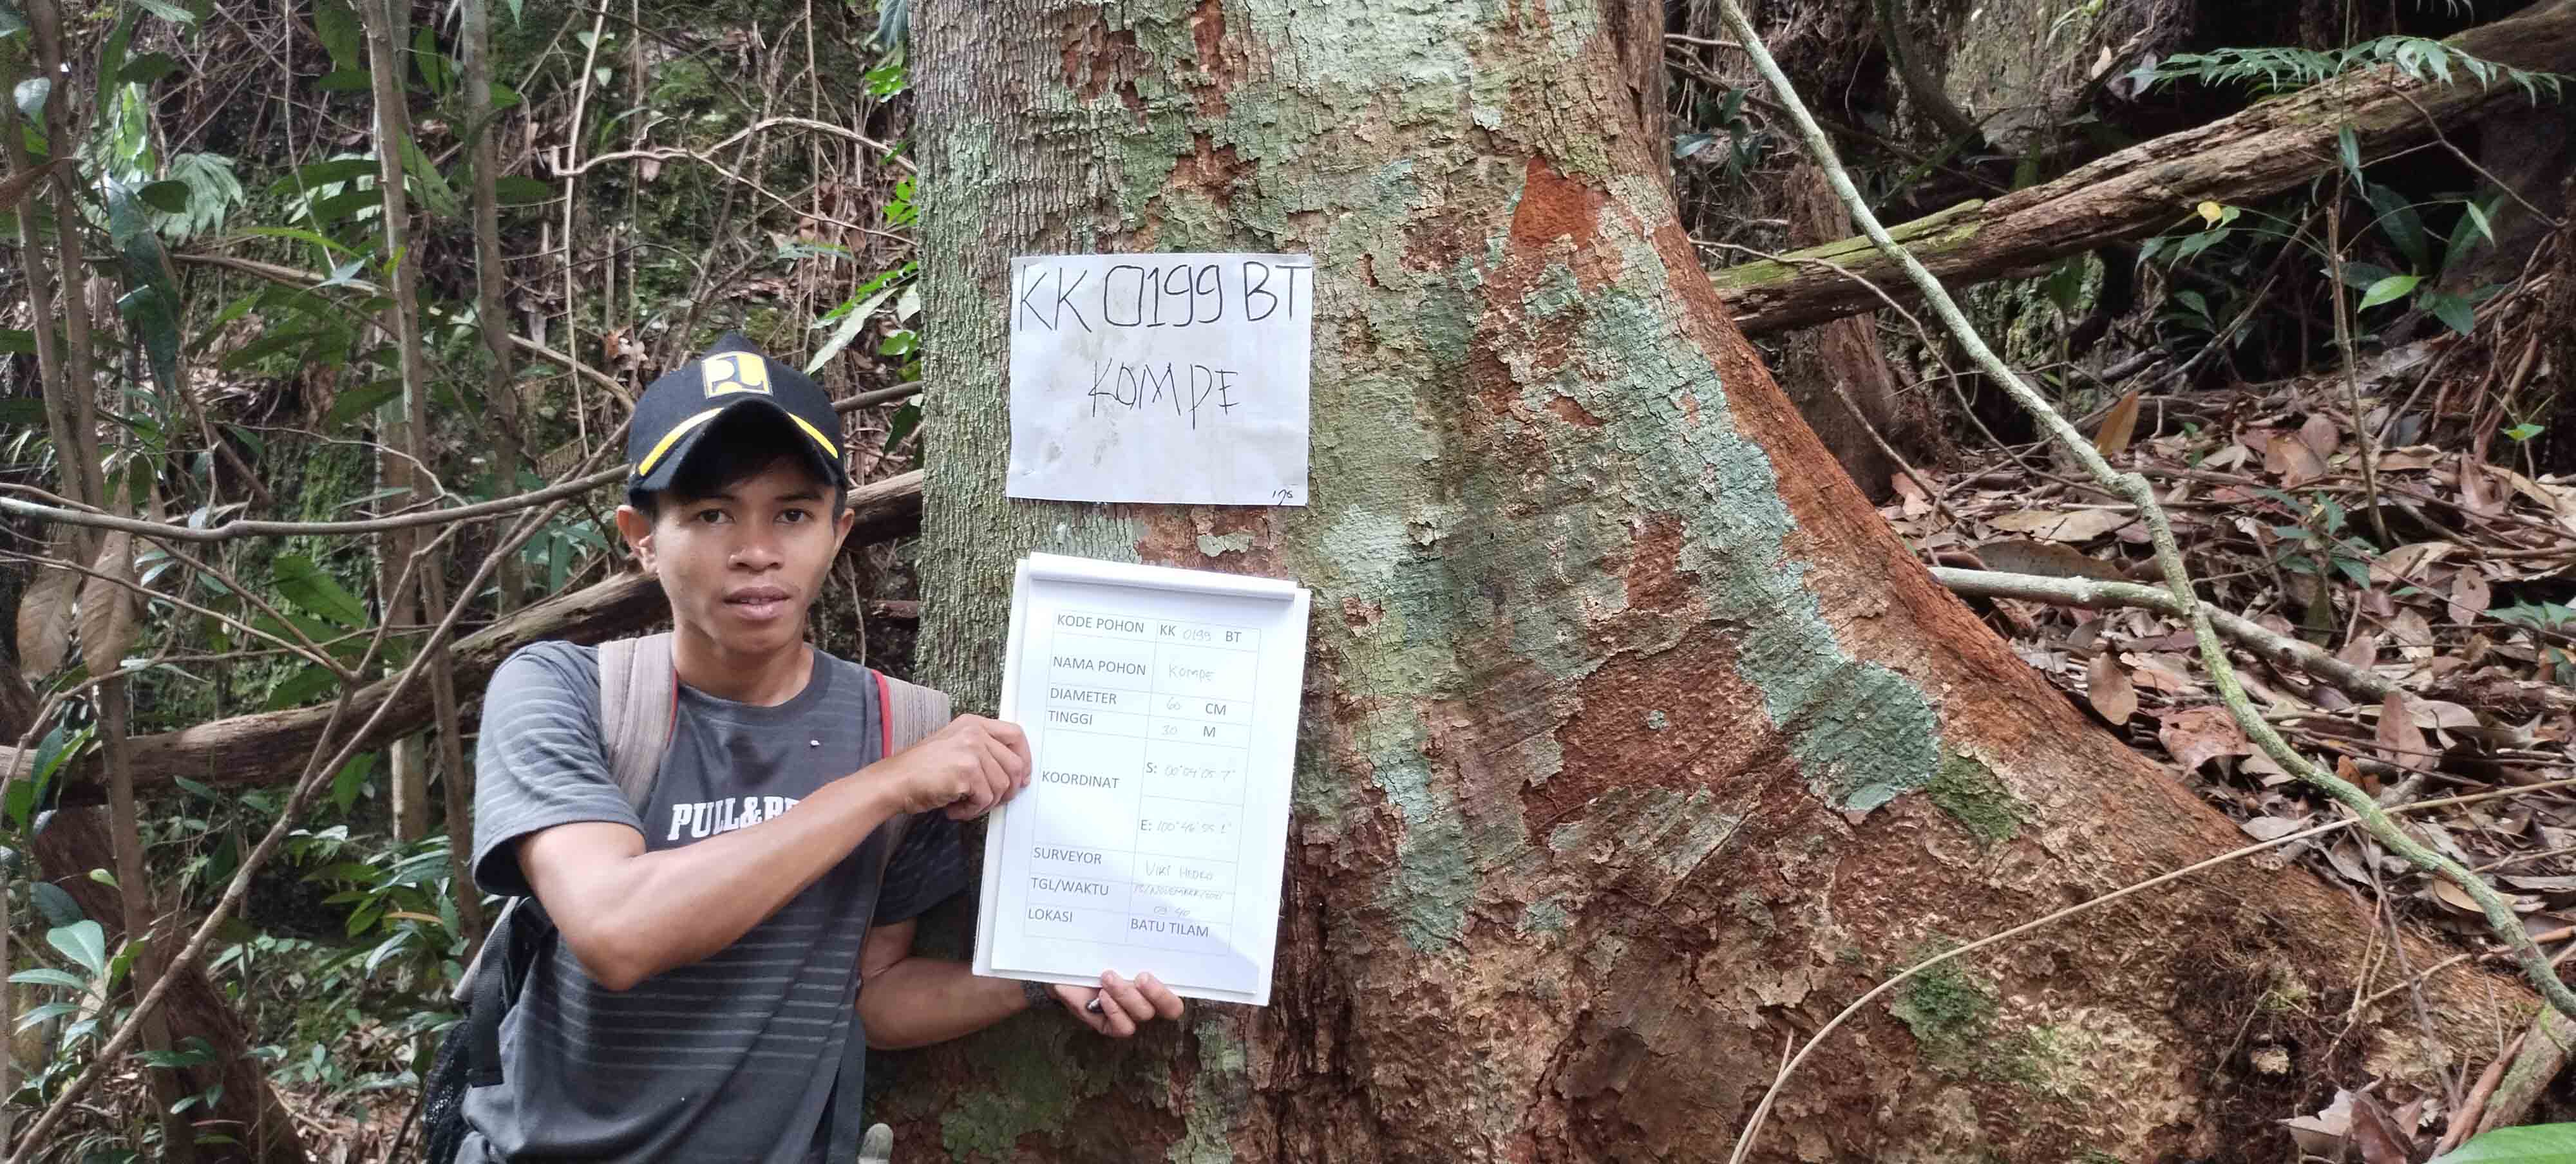 KK 0199 BT
KOMPE
PU
PULL&B
KODE POHON KK 0199 BT
NAMA POHON KOMPE
DIAMETER 60 CM
TINGGI 30 M
KOORDINAT S: 00°04'05.7"
E: 100°46'55.1"
SURVEYOR VIKI HADRO
TGL/WAKTU
09:40
LOKASI BATU TILAM